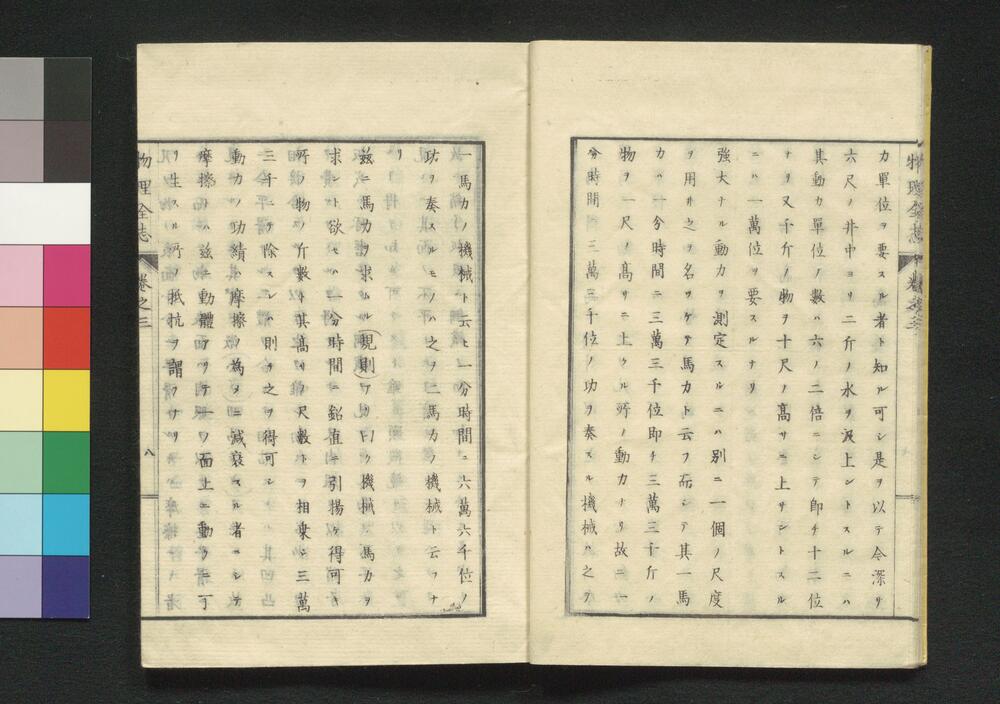 力單位ヲ要スル者ト知ル可シ是ヲ以テ今深サ
六尺ノ井中ヨリ二斤ノ水ヲ汲上ントスルニハ
其動力單位ノ數ハ六ノ二倍ニシテ即チ十二位
ナリ又千斤ノ物ヲ十尺ノ高サニ上サントスル
ニハ一萬位ヲ要スルナリ
強大ナル動力ヲ測定スルニハ別ニ一個ノ尺度
ヲ用井之ヲ名ヅケテ馬力ト云フ而シテ其一馬
力ハ一分時間ニ三萬三千位即チ三萬三千斤ノ
物ヲ一尺ノ高サニ上クル所ノ動力ナリ故ニ一
分時間三萬三千位ノ功ヲ奏スル機械ハ之ヲ
一馬力ノ機械ト云ヒ一分時間ニ六萬六千位ノ
功ヲ奏スルモノハ之ヲ二馬力ノ機械ト云フナ
リ
茲ニ馬力ヲ求ムル規則アリ曰ク機械ノ馬力ヲ
求ント欲セハ一分時間ニ鉛直ニ引揚ケ得可キ
所ノ物ノ斤數ト其高サノ尺數トヲ相乗シ三萬
三千ニテ除スレハ則チ之ヲ得可シ
動力ノ功績ハ摩擦ノ為メニ減衰スル者ニシテ
摩擦ハ茲ニ動體アリテ一ノ面上ニ動クニ丁
リ生スル所ノ抵抗ヲ謂フナリ
物理全志 卷之三 八